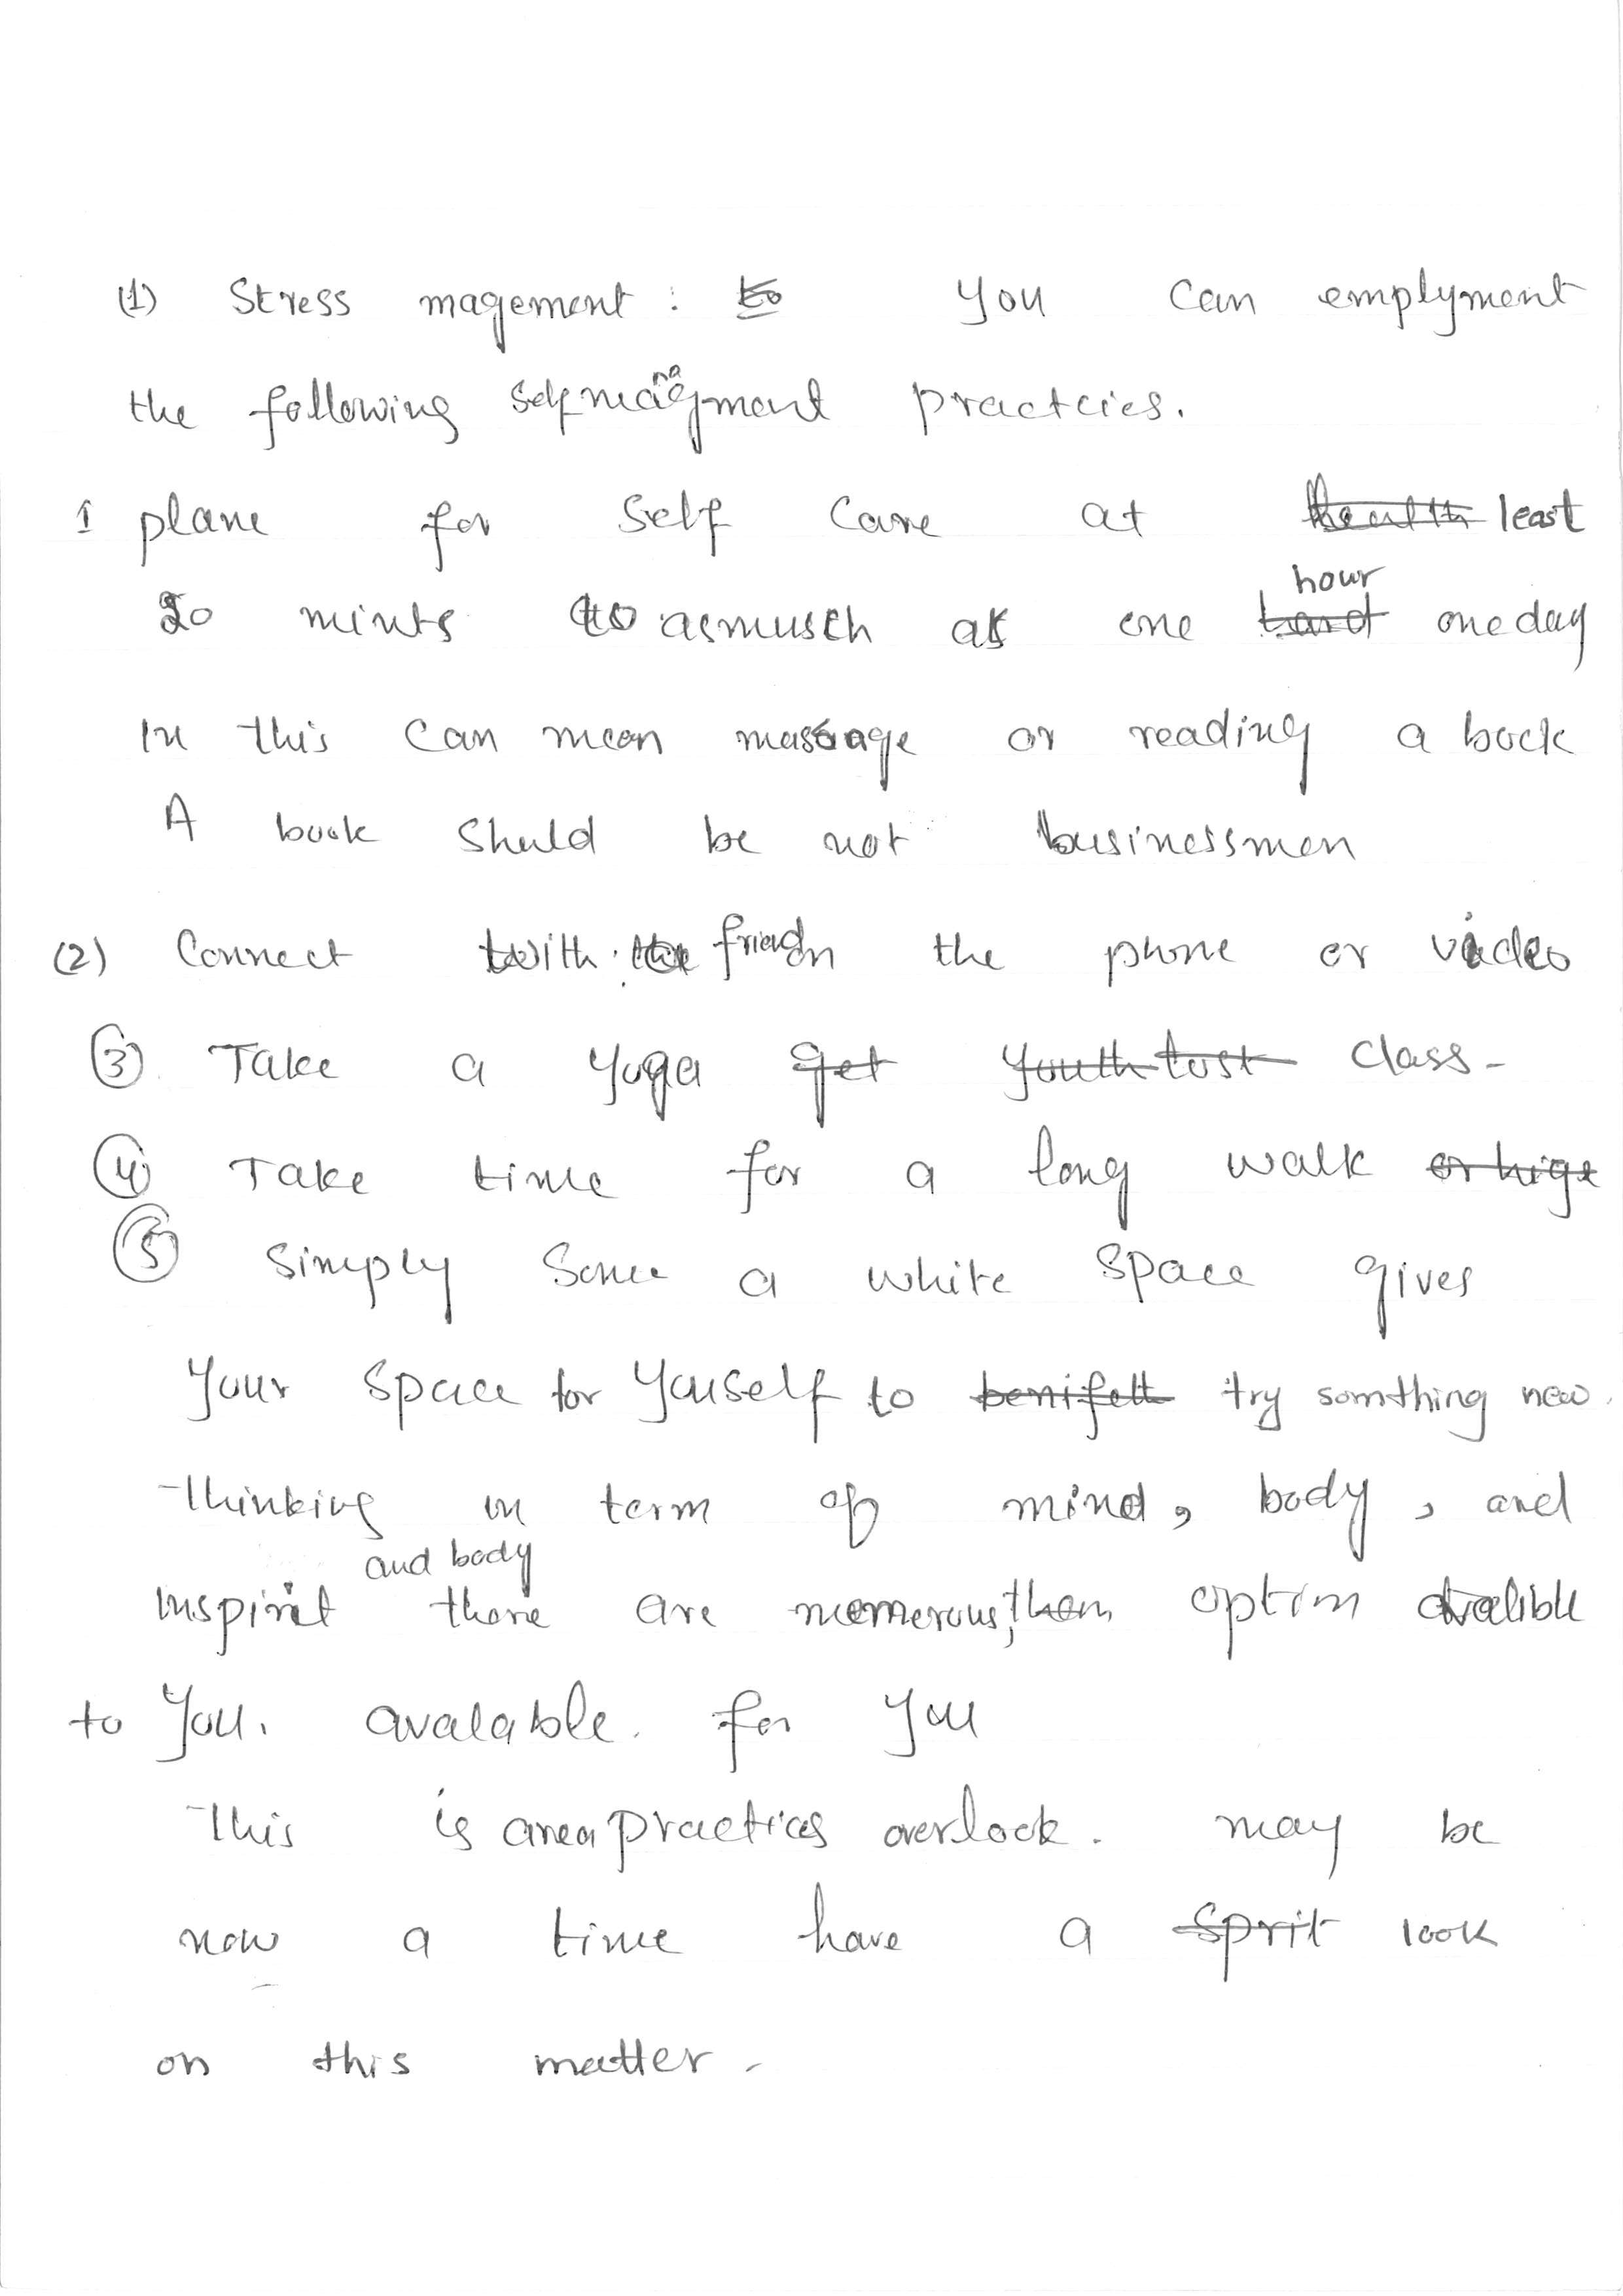 (1) Stress magement : to You can emplyment
the following selfmanagment practcies.
1 plane for Self Care at health least
20 mints to asmusch as one hour oneday
In this Can mean massage or reading a book
A book Shuld be not businessmen
(2) Connect with friend on the phone or video
(3) Take a Yoga get youth tost Class-
(4) Take time for a long walk or hige
(5) Simply Some a white Space gives
Your Space for Youself to benifett try somthing new.
Thinking in term of mind, body, and
and body
Inspirit there are numerous, them option avalible
to You. avalable. for You
This is area practices overlook. may be
now a time have a Sprit look
on this matter.